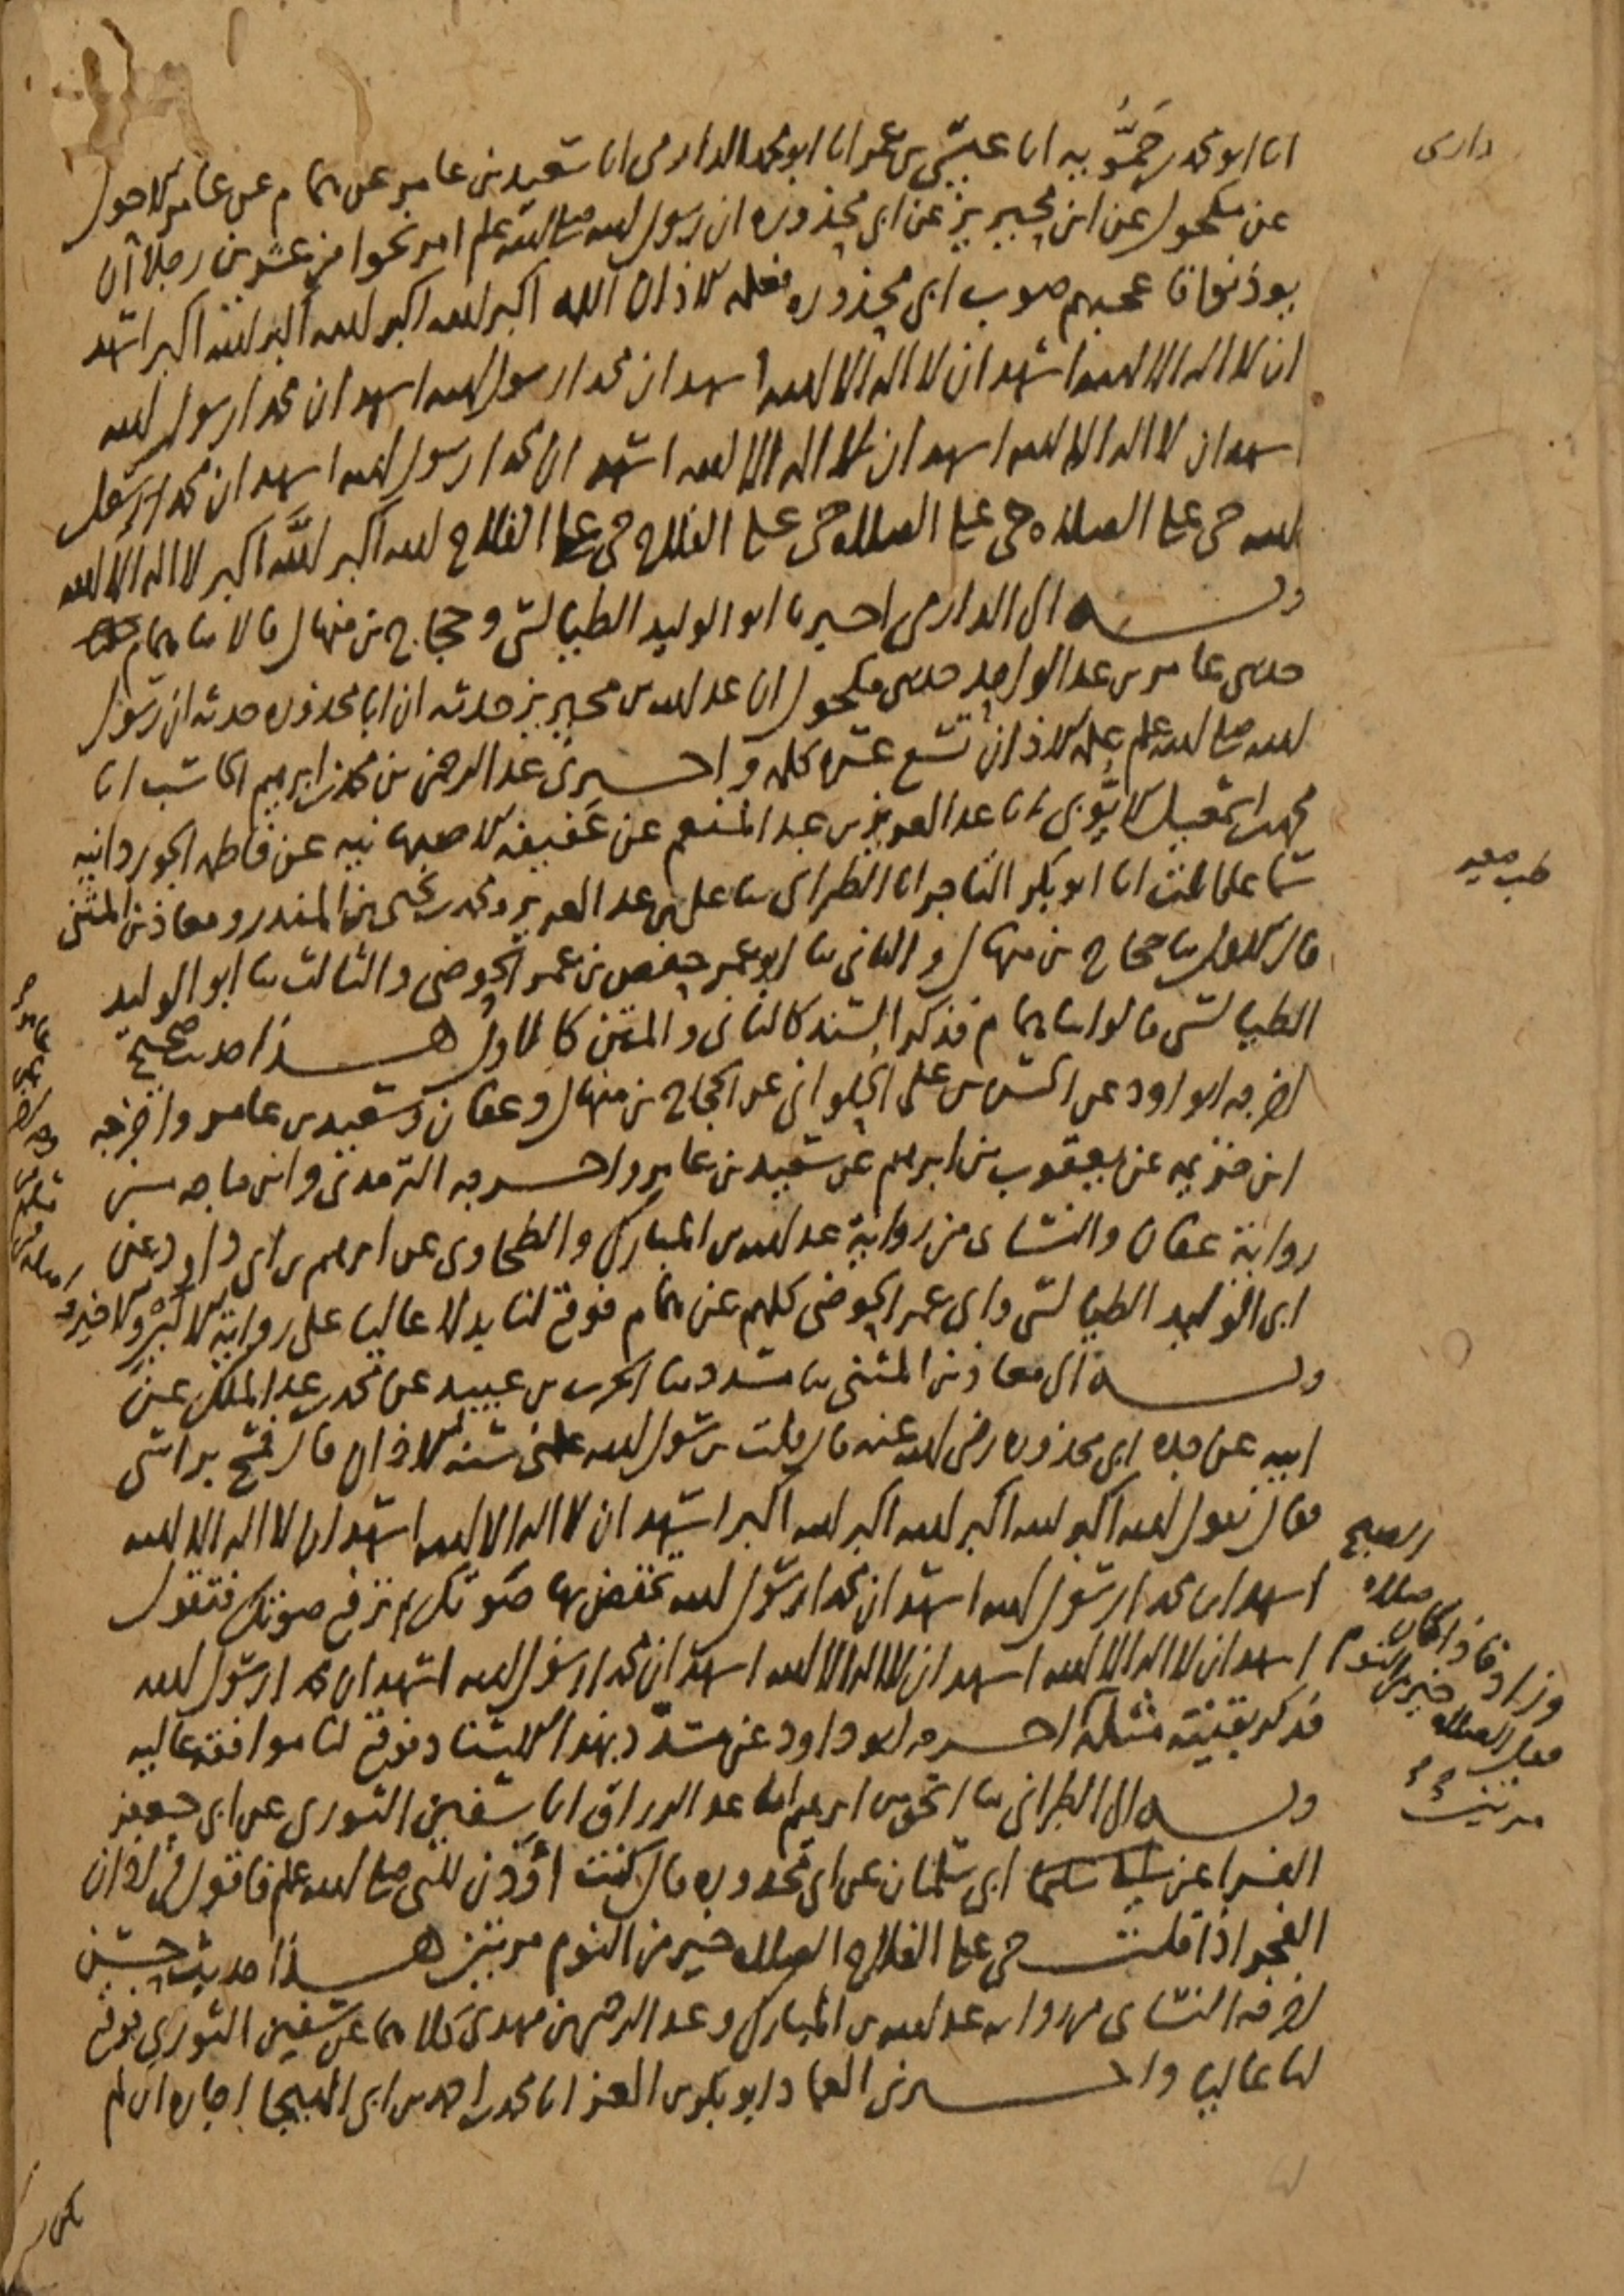 انا ابو محمد بن حمويه انا عيسى بن عمر انا ابو محمد الدارمي انا سعيد بن عامر عن همام عن عامر الاحول
عن مكحول عن ابن محيريز عن ابي محذورة ان رسول الله صلى الله عليه وسلم امر نحوا من عشرين رجلا ان
يوذنوا فاعجبهم صوت ابي محذوره فعلمه الاذان الله اكبر الله اكبر الله اكبر الله اكبر اشهد
ان لا اله الا الله اشهد ان لا اله الا الله اشهد ان محمدا رسول الله اشهد ان محمدا رسول الله
اشهد ان لا اله الا الله اشهد ان لا اله الا الله اشهد ان محمدا رسول الله اشهد ان محمدا رسول
الله حي على الصلاه حي على الصلاه حي على الفلاح حي على الفلاح الله اكبر الله اكبر لا اله الا الله
وبه الى الدارمي اخبرنا ابو الوليد الطيالسي وحجاج بن منهال قالا ثنا همام
حدثني عامر بن عبد الواحد حدثني مكحول ان عبد الله بن محيريز حدثه ان ابا محذوره حدثه ان رسول
الله صلى الله عليه وسلم علمه الاذان تسع عشره كلمه واخبرني عبد الرحمن بن محمد بن ابرهيم الكاتب انا
محمد بن اسمعيل الايوبي انا عبد العزيز بن عبد المنعم عن عفيفه الاصبهانيه عن فاطمه الجوزدانيه
سماعا انا ابو بكر التاجر انا الطبراني ثنا علي بن عبد العزيز ومحمد بن يحيى بن المنذر ومعاذ بن المثنى
قال الاول ثنا حجاج بن منهال والثاني ثنا ابو عمر حفص بن عمر الحوضي والثالث ثنا ابو الوليد
الطيالسي قالوا ثنا همام فذكر السند كالثاني والمتن كالاول هذا حديث صحيح
اخرجه ابو داود عن الحسن بن علي الحلواني عن الحجاج بن منهال وعفان وسعيد بن عامر واخرجه
ابن خزيمه عن يعقوب بن ابرهيم عن سعيد بن عامر واخرجه الترمذي وابن ماجه من
رواية عفان والنسائ من رواية عبد الله بن المبارك والطحاوي عن ابرهيم بن ابي داود عن
ابي الوليد الطيالسي وابي عمر الحوضي كلهم عن همام فوقع لنا بدلا عاليا على روايه
وبه الى معاذ بن المثنى ثنا مسدد ثنا الحرث بن عبيد عن محمد بن عبد الملك عن
ابيه عن جده ابي محذوره رضي الله عنه قال قلت يرسول الله علمني سنه الاذان قال فمسح براسي
فقال تقول الله اكبر الله اكبر الله اكبر الله اكبر اشهد ان لا اله الا الله اشهد ان لا اله الا الله
اشهد ان محمدا رسول الله اشهد ان محمدا رسول الله تخفض بها صوتك ثم ترفع صوتك فتقول
اشهد ان لا اله الا الله اشهد ان لا اله الا الله اشهد ان محمدا رسول الله اشهد ان محمدا رسول الله
فذكر بقيته مثله اخرجه ابو داود عن مسدد بهذا الاسناد فوقع لنا موافقه عاليه
وبه الى الطبراني ثنا اسحق بن ابرهيم انا عبد الرزاق انا سفين الثوري عن ابي جعفر
الفرا عن ابي سلمان عن ابي محذوره قال كنت أؤذن للنبي صلى الله عليه وسلم فاقول في اذان
الفجر اذا قلت حي على الفلاح الصلاه خير من النوم مرتين هذا حديث حسن
اخرجه النسائ من روايه عبد الله بن المبارك وعبد الرحمن بن مهدي كلاهما عن سفين الثوري فوقع
لنا عاليا واخبرني العماد ابو بكر بن العز انا محمد بن احمد بن ابي الهيجا اجازه ان لم
يكن
وزاد فاذا كان صلاه الصبح
فقل الصلاه خير من النوم
مرتين